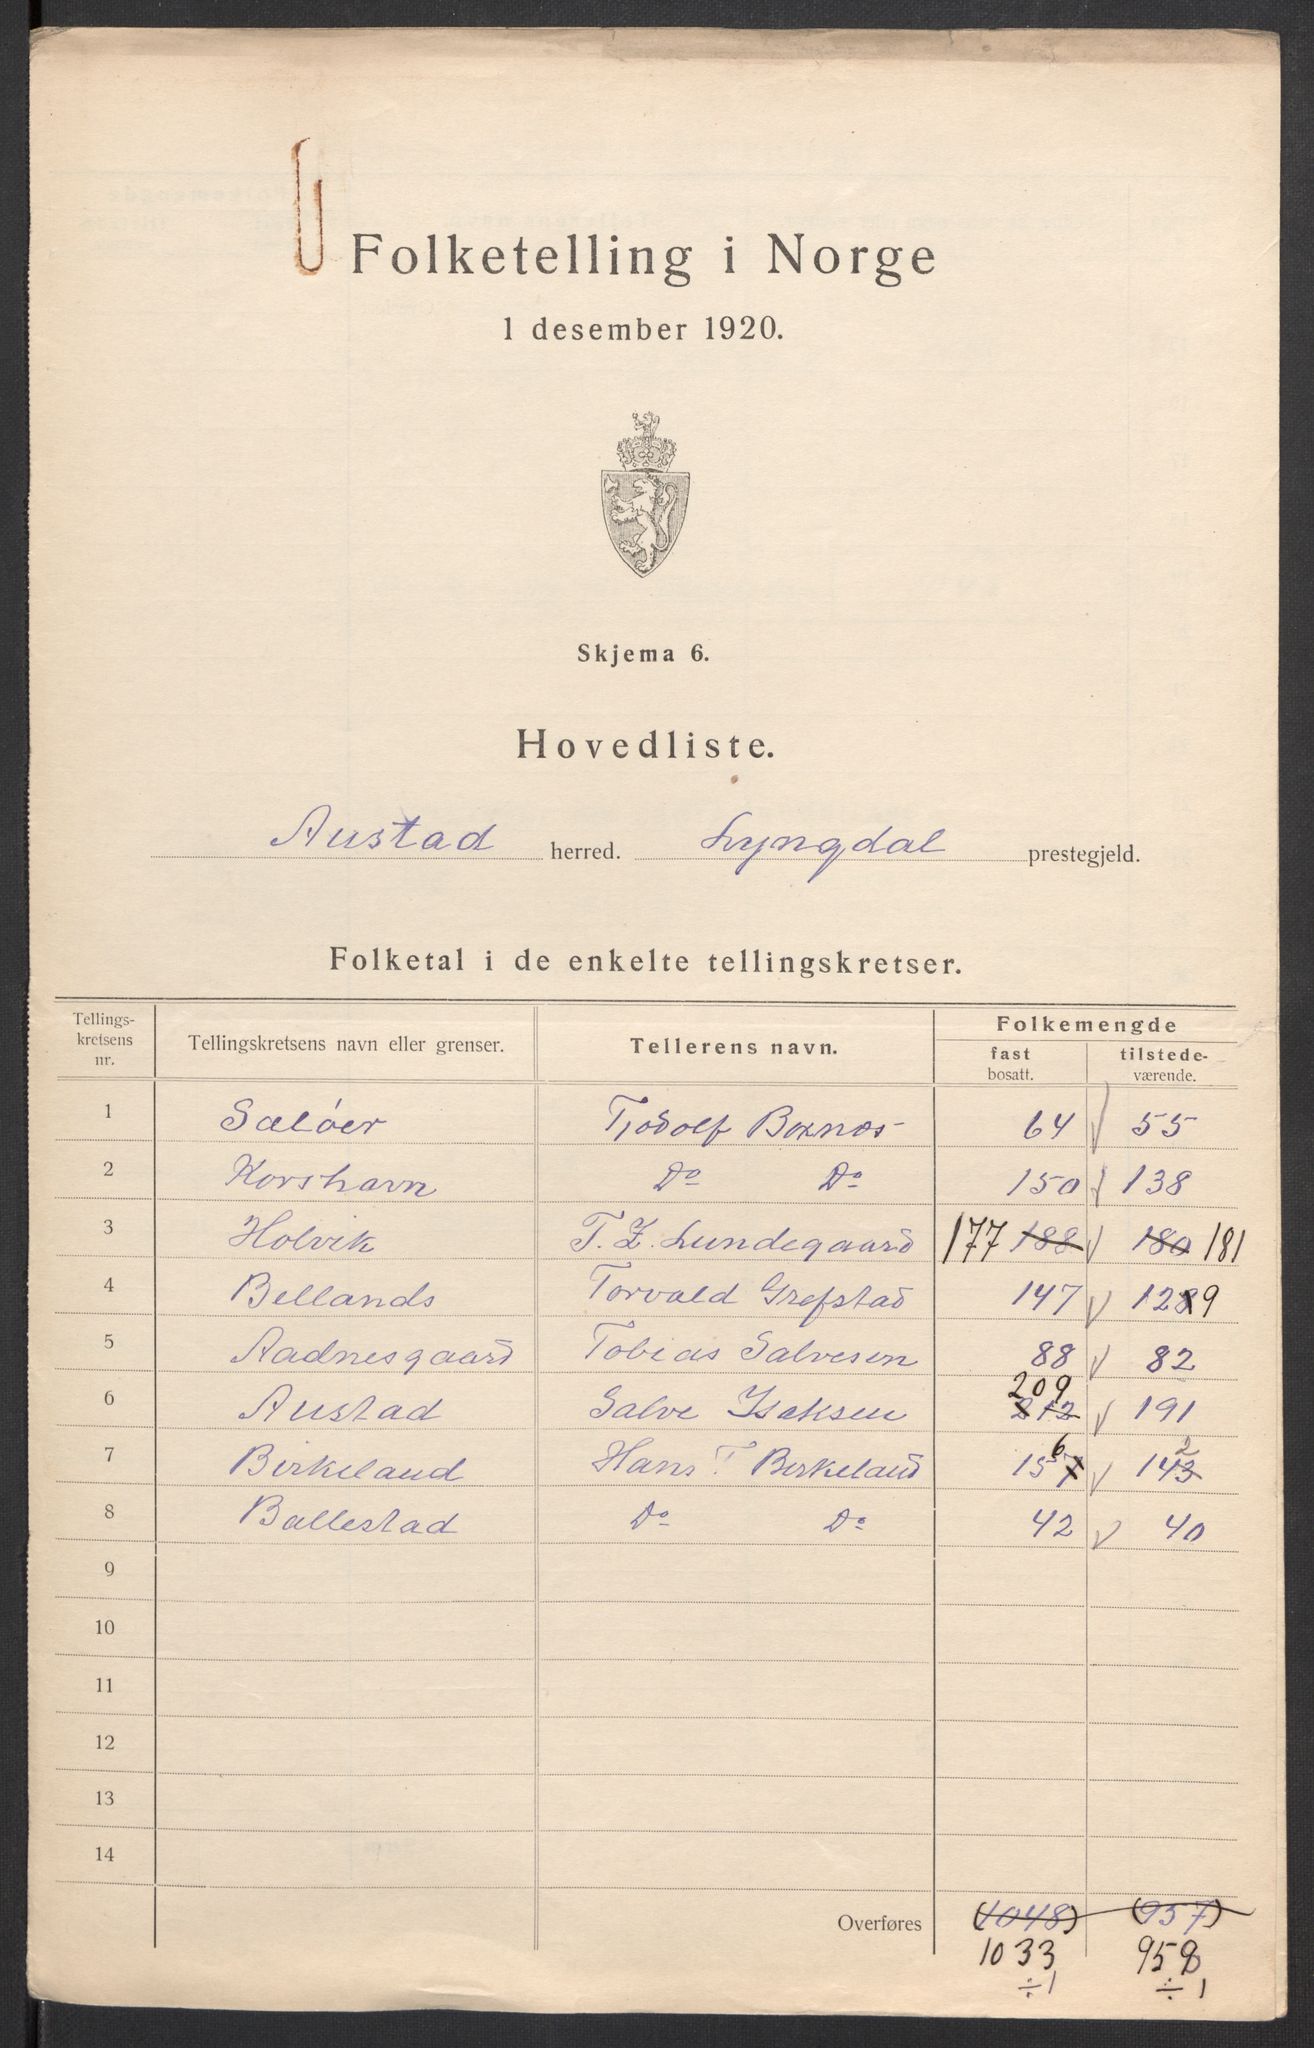 Folketelling i Norge
1 desember 1920.
Skjema 6.
Hovedliste.
Austad herred. Lyngdal prestegjeld.
Folketal i de enkelte tellingskretser.
Tellings-
kretsens
nr.
Tellingskretsens navn eller grenser.
Tellerens navn.
Folkemengde
fast
bosatt.
tilstede-
værende.
1 Seløer Tjodolf 64 55
2 Korshavn Do Do 150 138
3 Holvik T. Z. Lundegaard 177 188 180 181
4 Bellands Torvald Grefstad 147 128 9
5 Aadnesgaard Tobias Salvesen 88 82
6 Austad Salve Isaksen 209 212 191
7 Birkeland Hans T Birkeland 157 6 143 2
8 Ballestad Do Do 42 40
9
10
11
12
13
14
Overføres (1048) (957)
1033 958
÷1 ÷1